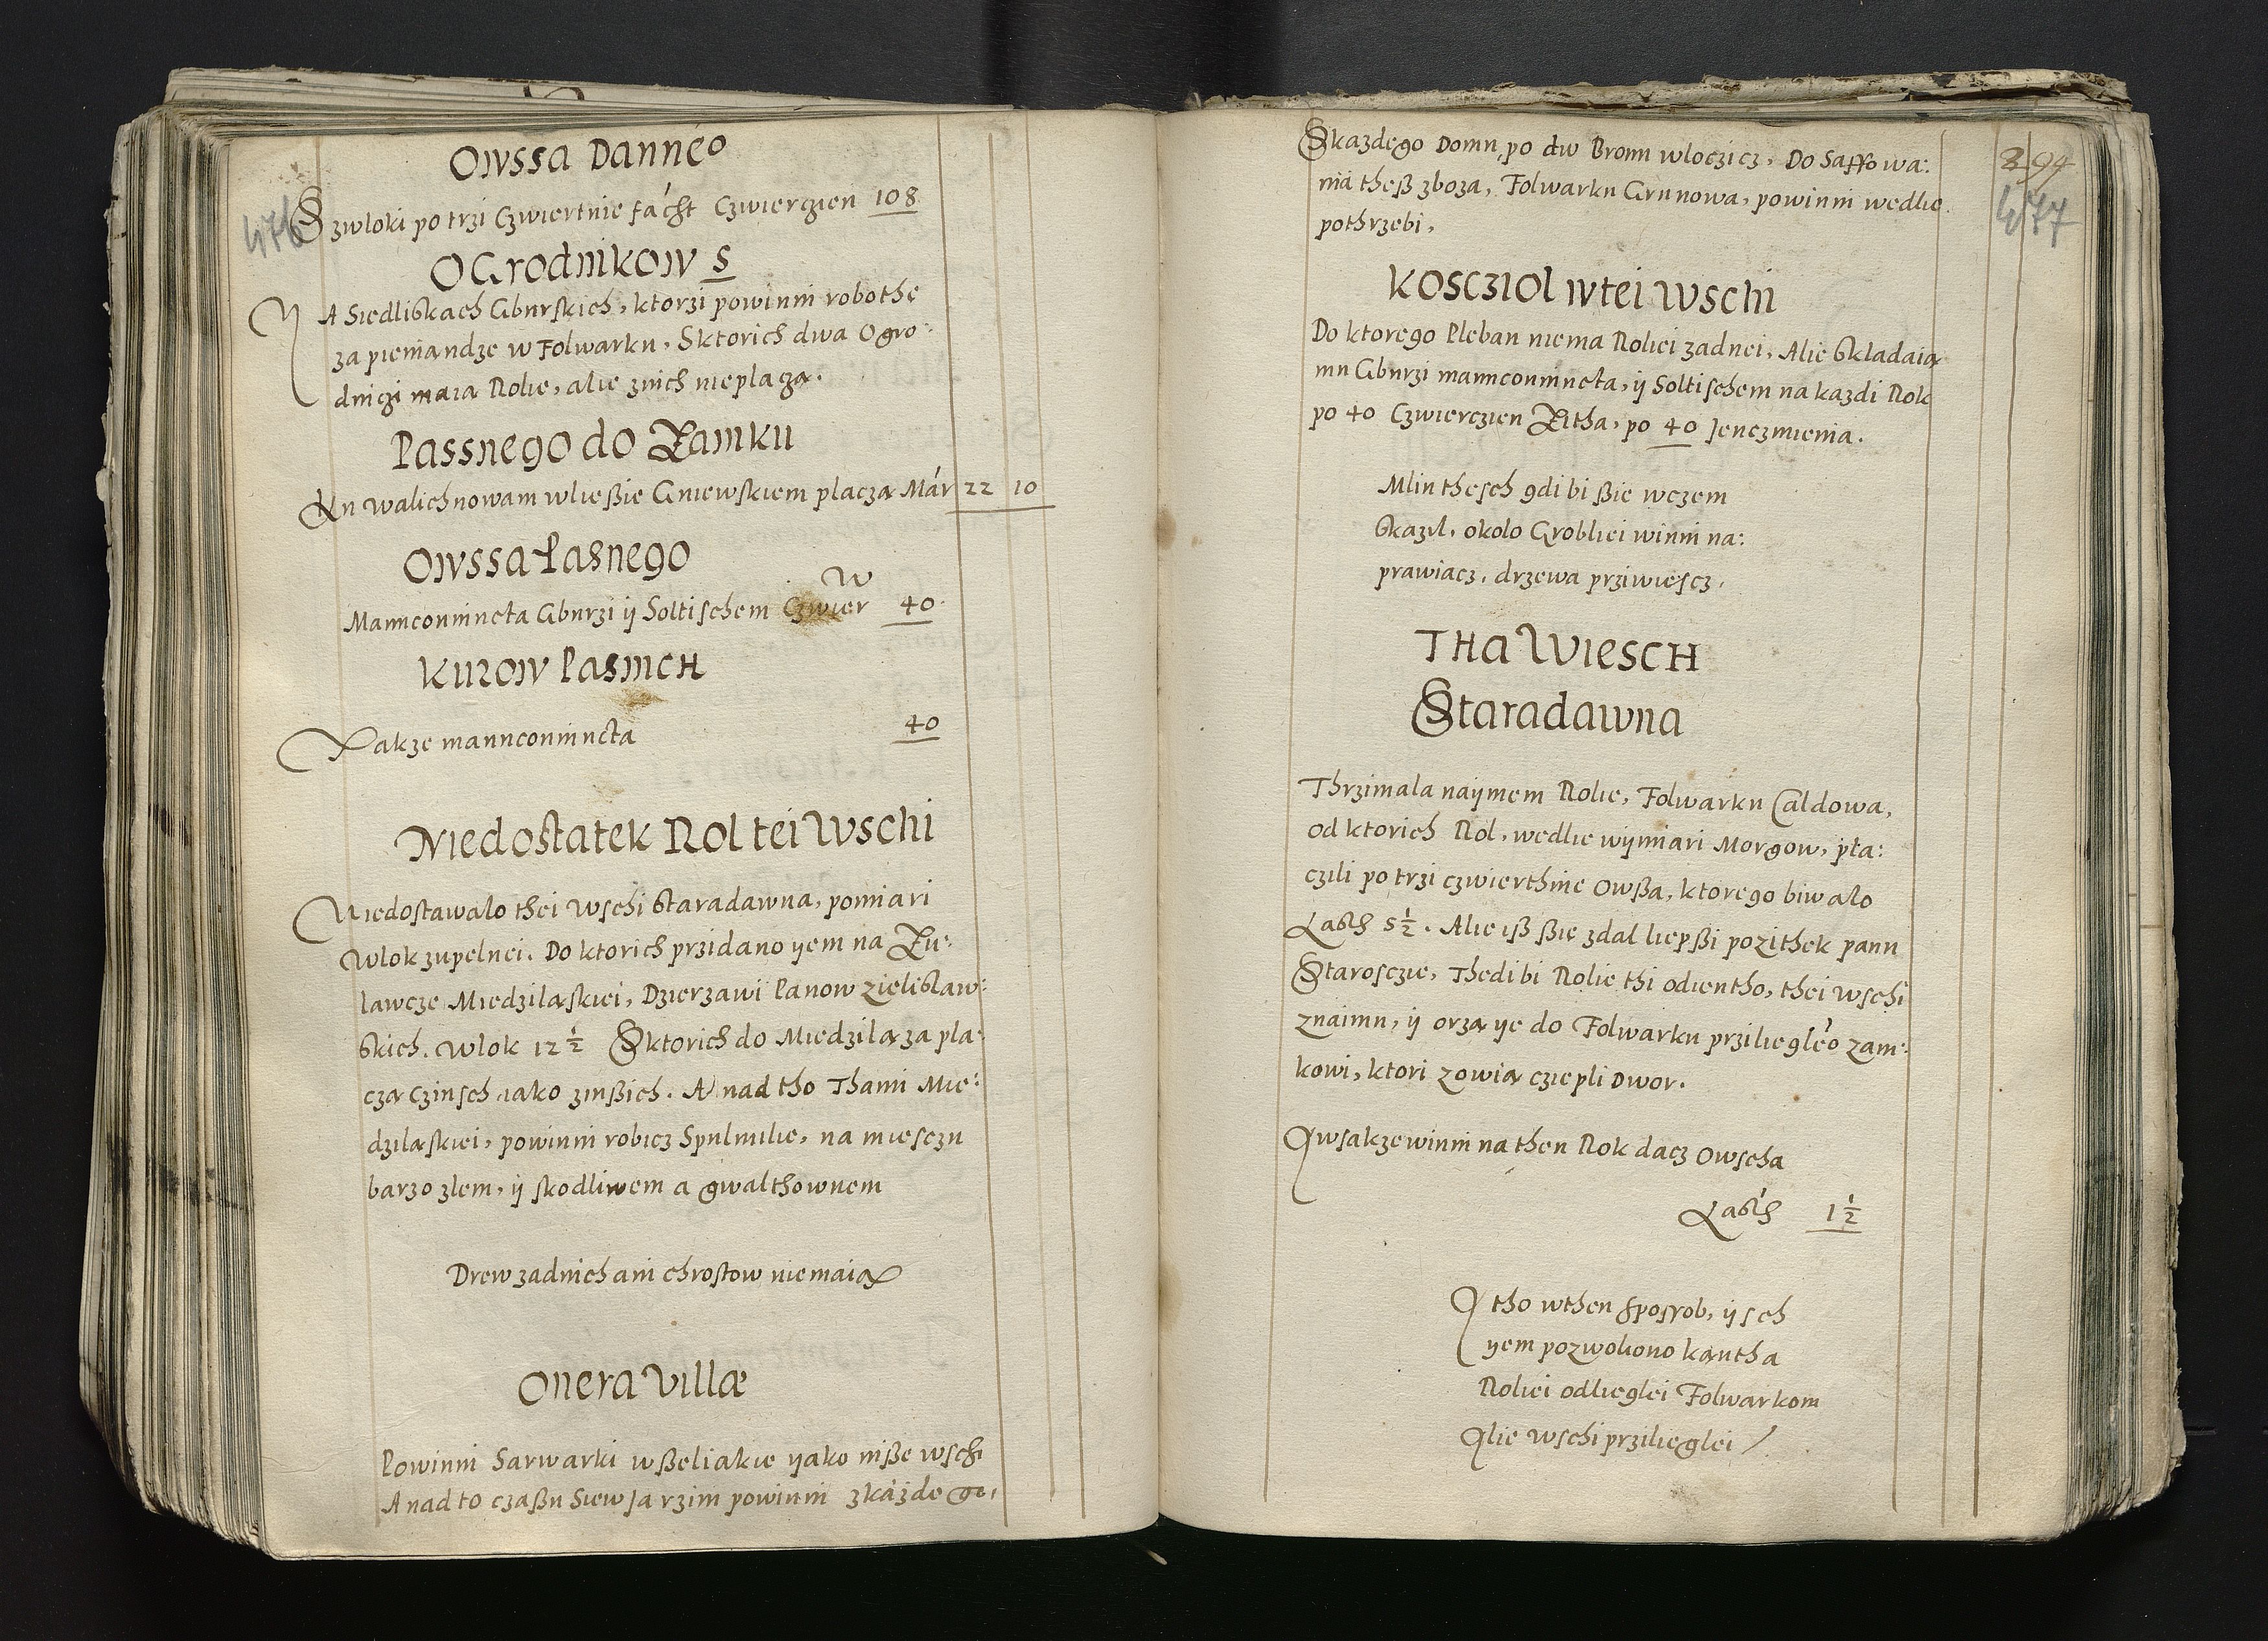 Owssa Danneo
476
Szwloki po trzi Czwiertnie fácżt Czwierczien 108
OGrodnikow 5
NA Siedliskach Gburskich, ktorzi powinni robothe
za pieniandze w Folwarku, Sktorich dwa Ogro:
dniczi maia Rolie, alie znich nieplacza.
Passnego do Zamku
Ku Walichnowam wliessie Gniewskiem placza Már 22 10
Owssa Pasnego
W
Manuconiuncta Gburzi ÿ Soltischem Czwier 40
Kurow Pasnich
Takze manuconiuncta 40
Niedostatek Rol tei Wschi
Niedostawalo thei Wschi staradawna, pomiari
Wlok zupelnei. Do ktorich przidano yem na Zu:
lawcze Miedzilaskiei, Dzierzawi Panow zielislaw:
skich. Wlok 12 ½ Sktorich do Miedzilaza pla:
cza Czinsch iako zinßich. A nad tho Thami Mie:
dzilaskiei, powinni robicz Spulnilie, na miesczu
barzo zlem, ÿ skodliwem a gwalthownem
Drew zadnich ani chrostow niemaia
Onera Villæ
Powinni Sarwarki wßeliakie yako niße wschi
A nad to czaßu Siew Jarzim powinni zkażdego,
Skazdego Domu, po dw Bronu wloczicz, Do Saffowa:
nia theß zboza, Folwarku Grunowa, powinni wedlie
pothrzebi,
8 94
477
Koscziol wtei Wschi
Do ktorego Pleban niema Roliei zadnei, Alie skladaia
mu Gburzi manuconiuncta, ÿ Soltischem na kazdi Rok
po 40 Czwierczien Zitha, po 40 Jenczmienia.
Mlin thesch gdi bi ßie wczem
skazil, okolo Grobliei winni na:
prawiacz, drzewa prziwiescz,
THa Wiesch
Staradawna
Thrzimala naÿmem Rolie, Folwarku Caldowa,
od ktorich Rol, wedlie wÿmiari Morgow, pla:
czili po trzi czwierthnie Owßa, ktorego biwalo
Lasth 5½. Alie iß ßie zdal liepßi pozithek panu
Starosczie, Thedi bi Rolie thi odientho, thei wschi
znaimu, ÿ orza ye do Folwarku przilieglẻo zam:
kowi, ktori zowia cziepli Dwor.
Awsakze winni na then Rok dacz Owscha
Lasth 1½
A tho wthen spossob, ÿsch
yem pozwoliono kantha
Roliei odlieglei Folwarkom
Alie wschi przilieglei /